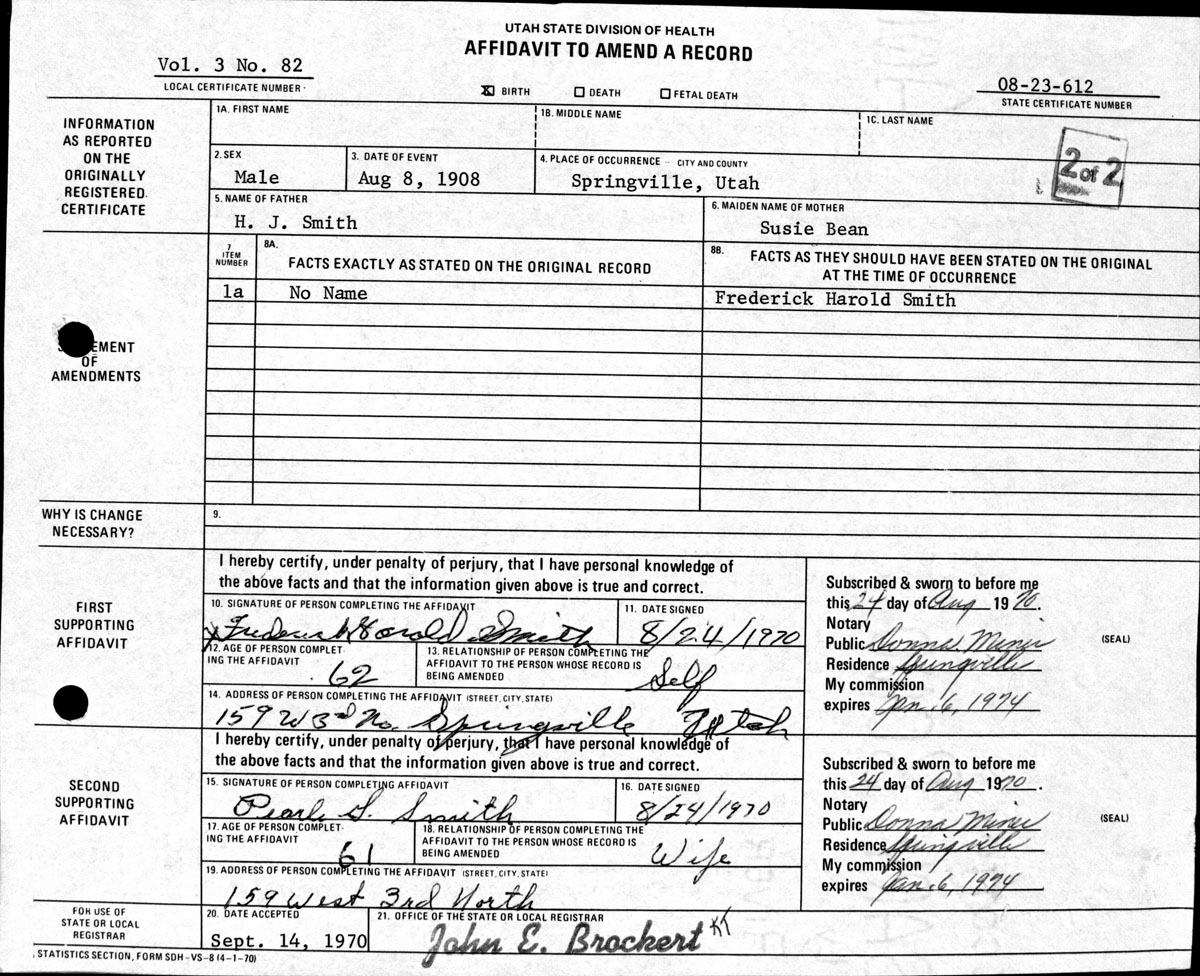 UTAH STATE DIVISION OF HEALTH
AFFIDAVIT TO AMEND A RECORD
Vol. 3 No. 82
LOCAL CERTIFICATE NUMBER
☒ BIRTH ☐ DEATH ☐ FETAL DEATH
08-23-612
STATE CERTIFICATE NUMBER
INFORMATION
AS REPORTED
ON THE
ORIGINALLY
REGISTERED
CERTIFICATE
1A. FIRST NAME
1B. MIDDLE NAME
1C. LAST NAME
2 of 2
2. SEX
Male
3. DATE OF EVENT
Aug 8, 1908
4. PLACE OF OCCURRENCE - CITY AND COUNTY
Springville, Utah
5. NAME OF FATHER
H. J. Smith
6. MAIDEN NAME OF MOTHER
Susie Bean
OF
AMENDMENTS
7
ITEM
NUMBER
8A.
FACTS EXACTLY AS STATED ON THE ORIGINAL RECORD
8B.
FACTS AS THEY SHOULD HAVE BEEN STATED ON THE ORIGINAL
AT THE TIME OF OCCURRENCE
1a No Name Frederick Harold Smith
WHY IS CHANGE
NECESSARY?
9.
FIRST
SUPPORTING
AFFIDAVIT
I hereby certify, under penalty of perjury, that I have personal knowledge of
the above facts and that the information given above is true and correct.
10. SIGNATURE OF PERSON COMPLETING THE AFFIDAVIT
x Frederick Harold Smith
11. DATE SIGNED
8/24/1970
12. AGE OF PERSON COMPLET-
ING THE AFFIDAVIT
62
13. RELATIONSHIP OF PERSON COMPLETING THE
AFFIDAVIT TO THE PERSON WHOSE RECORD IS
BEING AMENDED
Self
14. ADDRESS OF PERSON COMPLETING THE AFFIDAVIT (STREET, CITY, STATE)
159 W 3rd No. Springville Utah
Subscribed & sworn to before me
this 24 day of Aug 1970.
Notary
Public Donna Miner
Residence Springville
My commission
expires Jan. 6, 1974
(SEAL)
SECOND
SUPPORTING
AFFIDAVIT
I hereby certify, under penalty of perjury, that I have personal knowledge of
the above facts and that the information given above is true and correct.
15. SIGNATURE OF PERSON COMPLETING AFFIDAVIT
Pearl S. Smith
16. DATE SIGNED
8/24/1970
17. AGE OF PERSON COMPLET-
ING THE AFFIDAVIT
61
18. RELATIONSHIP OF PERSON COMPLETING THE
AFFIDAVIT TO THE PERSON WHOSE RECORD IS
BEING AMENDED
Wife
19. ADDRESS OF PERSON COMPLETING THE AFFIDAVIT (STREET, CITY, STATE)
159 West 3rd North
Subscribed & sworn to before me
this 24 day of Aug 1970.
Notary
Public Donna Miner
Residence Springville
My commission
expires Jan. 6, 1974
(SEAL)
FOR USE OF
STATE OR LOCAL
REGISTRAR
20. DATE ACCEPTED
Sept. 14, 1970
21. OFFICE OF THE STATE OR LOCAL REGISTRAR
John E. Brockert KT
STATISTICS SECTION, FORM SDH-VS-8 (4-1-70)